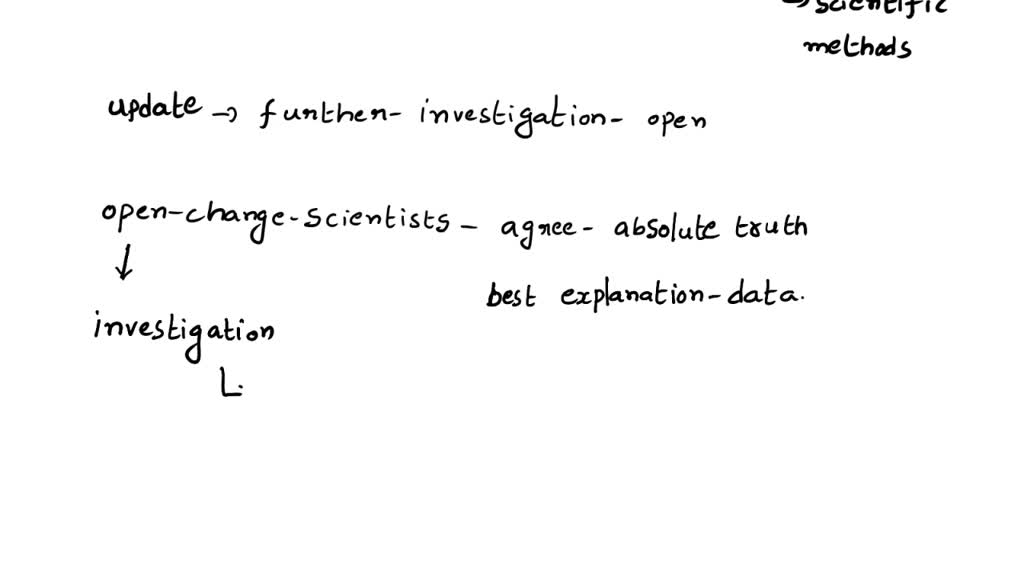 → scientific
methods
update → further- investigation- open
open-change-scientists - agree- absolute truth
↓
best explanation-data.
investigation
L.